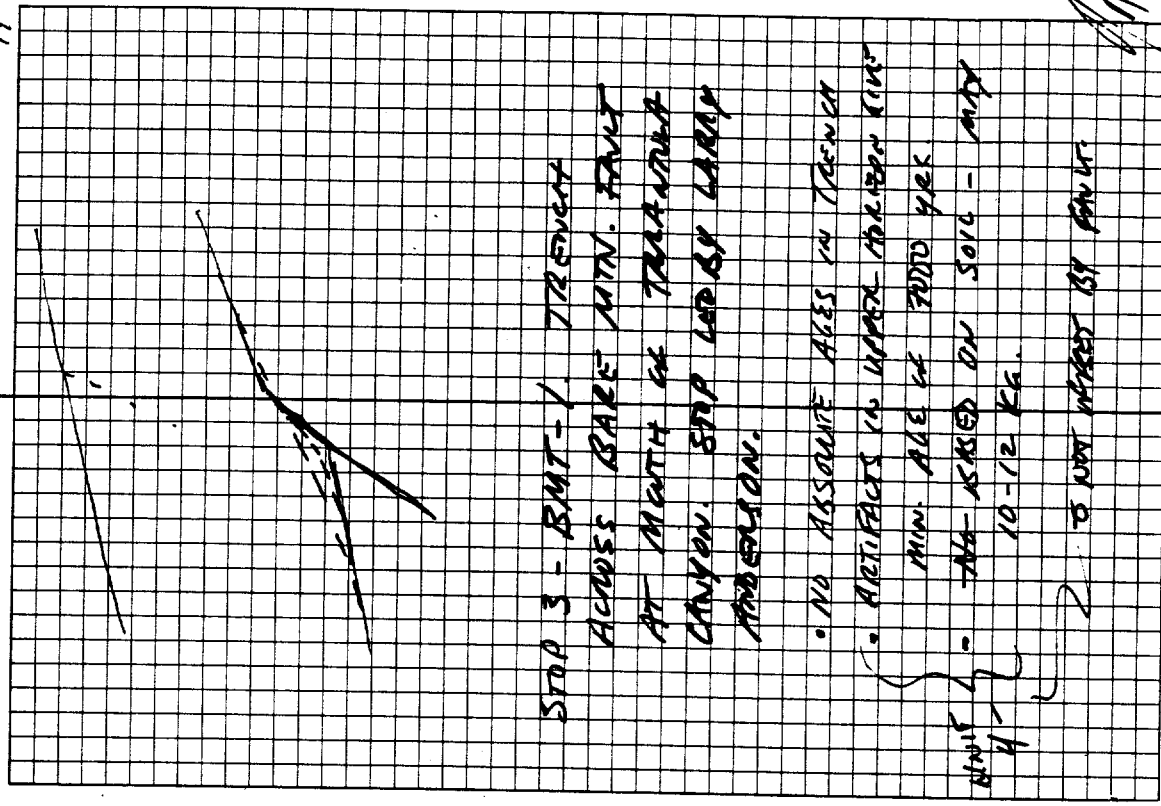 STOP 3 - BMT-1. TRENCH
ACROSS BARE MTN. FAULT
AT MOUTH OF TARANTULA
CANYON. STOP LED BY LARRY
ANDERSON.
• NO ABSOLUTE AGES IN TRENCH
• ARTIFACTS IN UPPER HORIZON GIVE
MIN. AGE OF 7000 YRS.
- BASED ON SOIL - MAY
10-12 KA.
UNIT
4
NOT OFFSET BY FAULT.